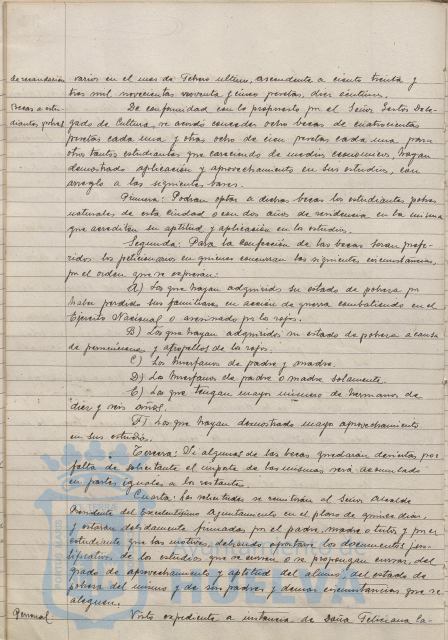 de recaudación varios en el mes de Febrero ultimo, ascendente a ciento treinta y
tres mil novecientas noventa y cinco pesetas, diez centimos.
Becas a estudiantes pobres De conformidad con lo propuesto por el Señor Gestor Dele-
gado de Cultura, se acordó conceder ocho becas de cuatrocientas
pesetas cada una y otras ocho de cien pesetas cada una para
otros tantos estudiantes que careciendo de medios economicos hayan
demostrado aplicación y aprovechamiento en sus estudios, con
arreglo a las siguientes bases.
Primera: Podran optar a dichas becas los estudiantes pobres
naturales de esta ciudad o con dos años de residencia en la misma
que acrediten su aptitud y aplicación en los estudios.
Segunda: Para la concesión de las becas seran prefe-
ridos los peticionarios en quienes concurran las siguientes circunstancias,
por el orden que se expresan:
A) Los que hayan adquirido su estado de pobreza por
haber perdido sus familiares en acción de guerra combatiendo en el
Ejercito Nacional o asesinados por los rojos.
B) Los que hayan adquirido su estado de pobreza a causa
de persecuciones y atropellos de los rojos.
C) Los huerfanos de padre y madre.
D) Los huerfanos de padre o madre solamente.
E) Los que tengan mayor número de hermanos de
diez y seis años.
F) Los que hayan demostrado mayor aprovechamiento
en sus estudios.
Tercera: Si algunas de las becas quedaran desiertas por
falta de solicitante el importe de las mismas será acumulado
en partes iguales a los restantes.
Cuarta: Las solicitudes se remitirán al Señor Alcalde
Presidente del Excelentisimo Ayuntamiento en el plazo de quince dias,
y estarán debidamente firmadas por el padre, madre o tutor y por el
estudiante que las motive, debiendo aportarse los documentos jus-
tificativos de los estudios que se cursen o se propongan cursar, del
grado de aprovechamiento y aptitud del alumno, del estado de
pobreza del mismo y de sus padres y demas circunstancias que se
aleguen.
Personal: Visto expediente a instancia de Doña Feliciana la-